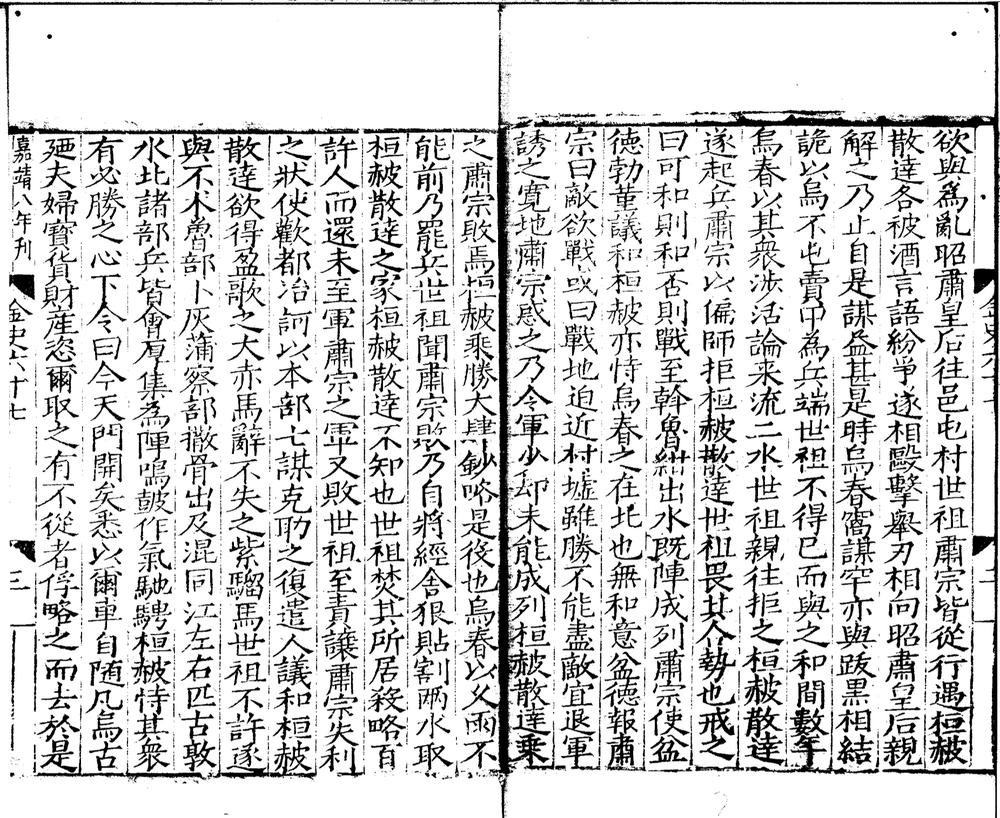 欲與爲亂昭肅皇后往邑屯村世祖肅宗皆從行遇桓赧
散達各被酒言語紛爭遂相毆擊舉刃相向昭肅皇后親
解之乃止自是謀益甚是時烏春窩謀罕亦與跋黑相結
詭以烏不屯賣甲為兵端世祖不得已而與之和間數年
烏春以其衆涉活論来流二水世祖親往拒之桓赧散達
遂起兵肅宗以偏師拒桓赧散達世祖畏其合勢也戒之
曰可和則和否則戰至斡魯紺出水既陣成列肅宗使盆
德勃菫議和桓赧亦恃烏春之在北也無和意盆德報肅
宗曰敵欲戰或曰戰地迫近村墟雖勝不能盡敵宜退軍
誘之寛地肅宗惑之乃令軍少却未能成列桓赧散達乗
之肅宗敗焉桓赧乗勝大肆鈔略是役也烏春以久雨不
能前乃罷兵世祖聞肅宗敗乃自將經舍狠貼割兩水取
桓赧散達之家桓赧散達不知也世祖焚其所居殺略百
許人而還未至軍肅宗之軍又敗世祖至責讓肅宗失利
之狀使歡都冶訶以本部七謀克助之復遣人議和桓赧
散達欲得盈歌之大赤馬辭不失之紫騮馬世祖不許遂
與不术魯部卜灰蒲察部撒骨出及混同江左右匹古敦
水北諸部兵皆會厚集為陣鳴鼓作氣馳騁桓赧恃其衆
有必勝之心下令曰今天門開矣悉以爾車自随凡烏古
廼夫婦寳貨財産恣爾取之有不從者俘略之而去於是
嘉靖八年刊
金史六十七
三